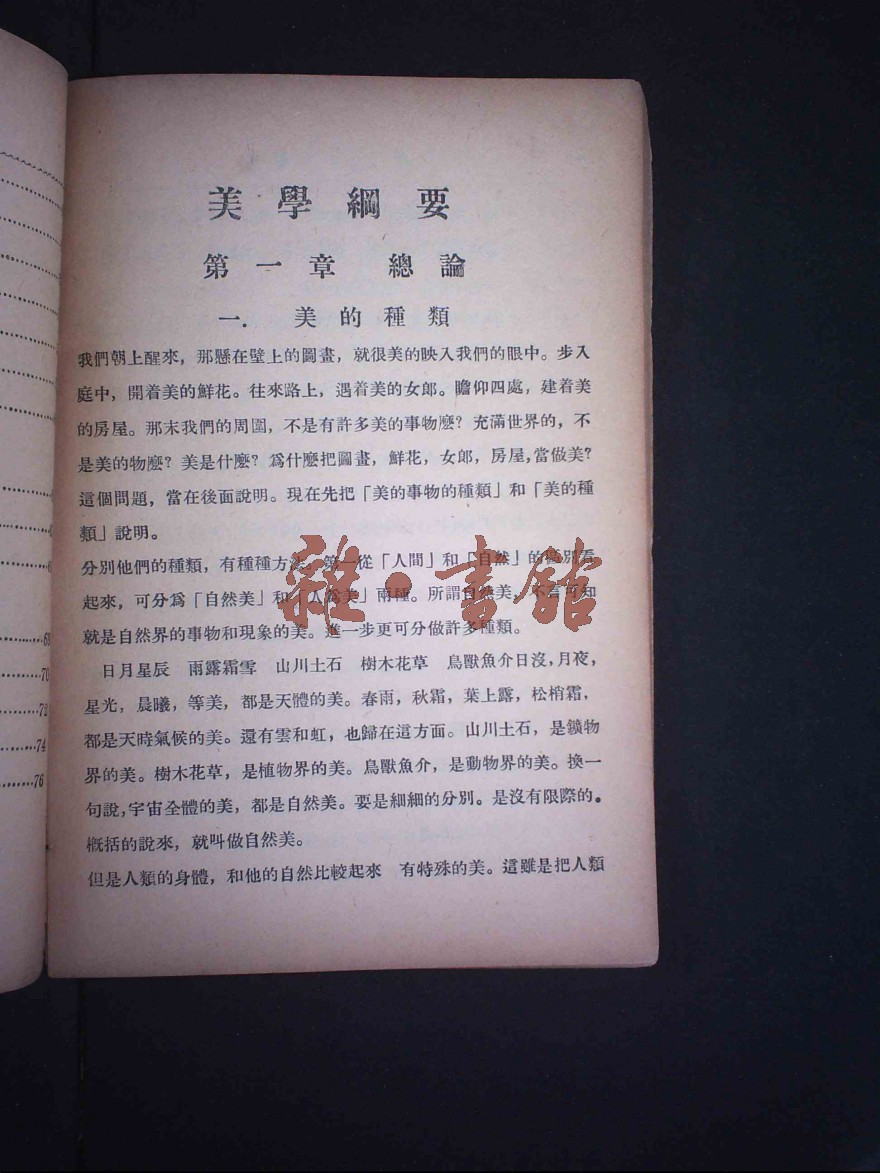 美學綱要
第一章 總論
一. 美的種類
我們朝上醒來，那懸在壁上的圖畫，就很美的映入我們的眼中。步入
庭中，開着美的鮮花。往來路上，遇着美的女郎。瞻仰四處，建着美
的房屋。那末我們的周圍，不是有許多美的事物麼？充滿世界的，不
是美的物麼？美是什麼？爲什麼把圖畫，鮮花，女郎，房屋，當做美？
這個問題，當在後面說明。現在先把「美的事物的種類」和「美的種
類」說明。
分別他們的種類，有種種方法。第一從「人間」和「自然」的區別看
起來，可分爲「自然美」和「人爲美」兩種。所謂自然美，不言可知
就是自然界的事物和現象的美。進一步更可分做許多種類。
日月星辰 雨露霜雪 山川土石 樹木花草 鳥獸魚介日沒，月夜，
星光，晨曦，等美，都是天體的美。春雨，秋霜，葉上露，松梢霜，
都是天時氣候的美。還有雲和虹，也歸在這方面。山川土石，是鑛物
界的美。樹木花草，是植物界的美。鳥獸魚介，是動物界的美。換一
句說，宇宙全體的美，都是自然美。要是細細的分別。是沒有限際的。
概括的說來，就叫做自然美。
但是人類的身體，和他的自然比較起來 有特殊的美。這雖是把人類
69
70
72
74
76
雜·書館